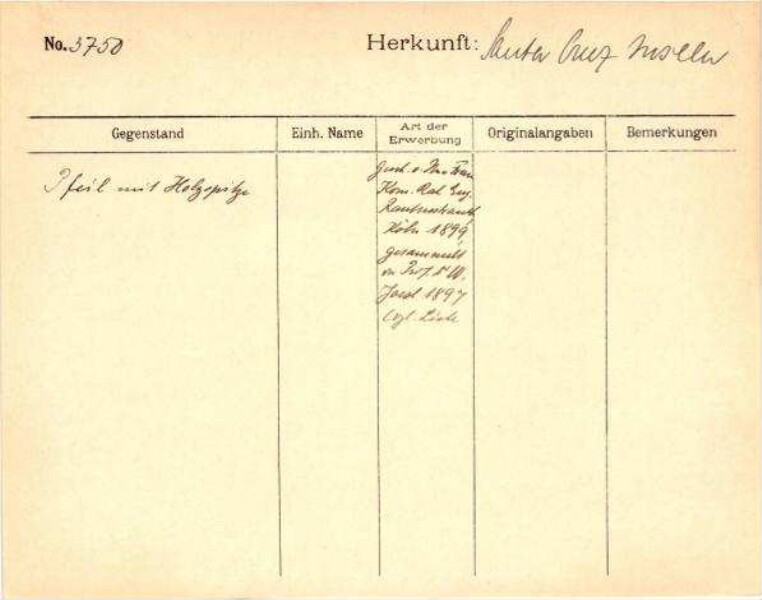 No. 3750 Herkunft: Santa Cruz Inseln
Gegenstand Einh. Name Art der Erwerbung Originalangaben Bemerkungen
Pfeil mit Holzspitze
Gesch. v. Frau
Kom. Rat Eug.
Rautenstrauch
Köln 1899,
gesammelt
von Prof. Dr W.
Joest 1897
(vgl. Liste